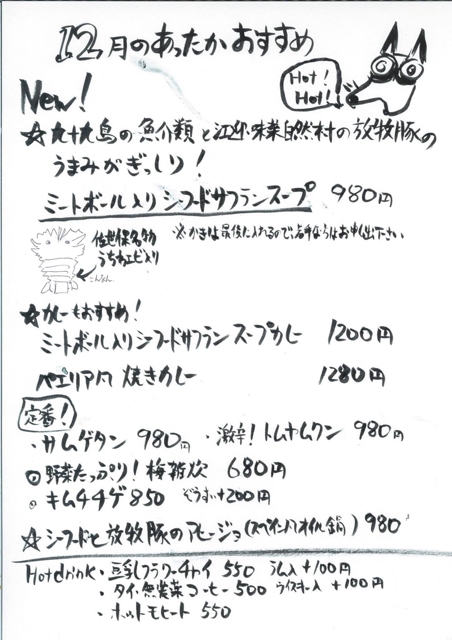 12月のあったかおすすめ
Hot!
Hot!
New!
☆九十九島の魚介類と江迎・味菜自然村の放牧豚の
うまみがぎっしり!
ミートボール入りシーフードサフランスープ 980円
※かきは最後に入れるので、苦手ならばお申し出下さい
佐世保名物
うちわエビ入り
こんなん
☆カレーもおすすめ!
ミートボール入りシーフードサフランスープカレー 1200円
パエリア風焼きカレー 1280円
定番!
・サムゲタン 980円 ・激辛!トムヤムクン 980円
◎野菜たっぷり!梅雑炊 680円
◎キムチチゲ 850 ぞうすい+200円
☆シーフードと放牧豚のアヒージョ(スペイン風オイル鍋) 980
Hot drink・豆乳フラワーチャイ 550 ラム入+100円
・タイ・無農薬コーヒー 500 +100円
・ホットモヒート 550